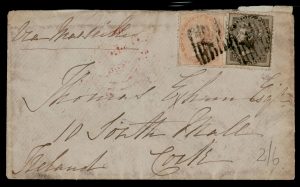 Via Marseille
Thomas Exham Esqr
10 South Mall
Cork
Ireland
2/6